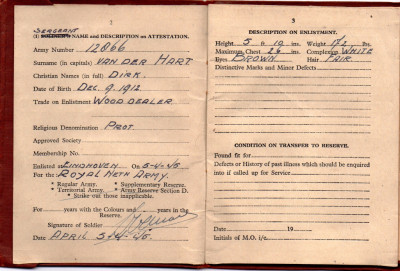 2
SERGEANT
(1) SOLDIER'S NAME and DESCRIPTION on ATTESTATION.
Army Number 12866
Surname (in capitals) VAN DER HART
Christian Names (in full) DIRK.
Date of Birth DEC. 9, 1912
Trade on Enlistment WOOD DEALER
Religious Denomination PROT.
Approved Society
Membership No.
Enlisted at EINDHOVEN On 5-4-45
For the ROYAL NETH ARMY.
* Regular Army. * Supplementary Reserve.
* Territorial Army. * Army Reserve Section D.
* Strike out those inapplicable.
For years with the Colours and years in the
Reserve.
Signature of Soldier
Date APRIL 5-4-45.
3
DESCRIPTION ON ENLISTMENT.
Height 5 ft 10 ins. Weight 172 lbs.
Maximum Chest ins. Complexion WHITE
Eyes BROWN Hair FAIR
Distinctive Marks and Minor Defects
CONDITION ON TRANSFER TO RESERVE.
Found fit for
Defects or History of past Illness which should be enquired
into if called up for Service
Date 19
Initials of M.O. i/c.